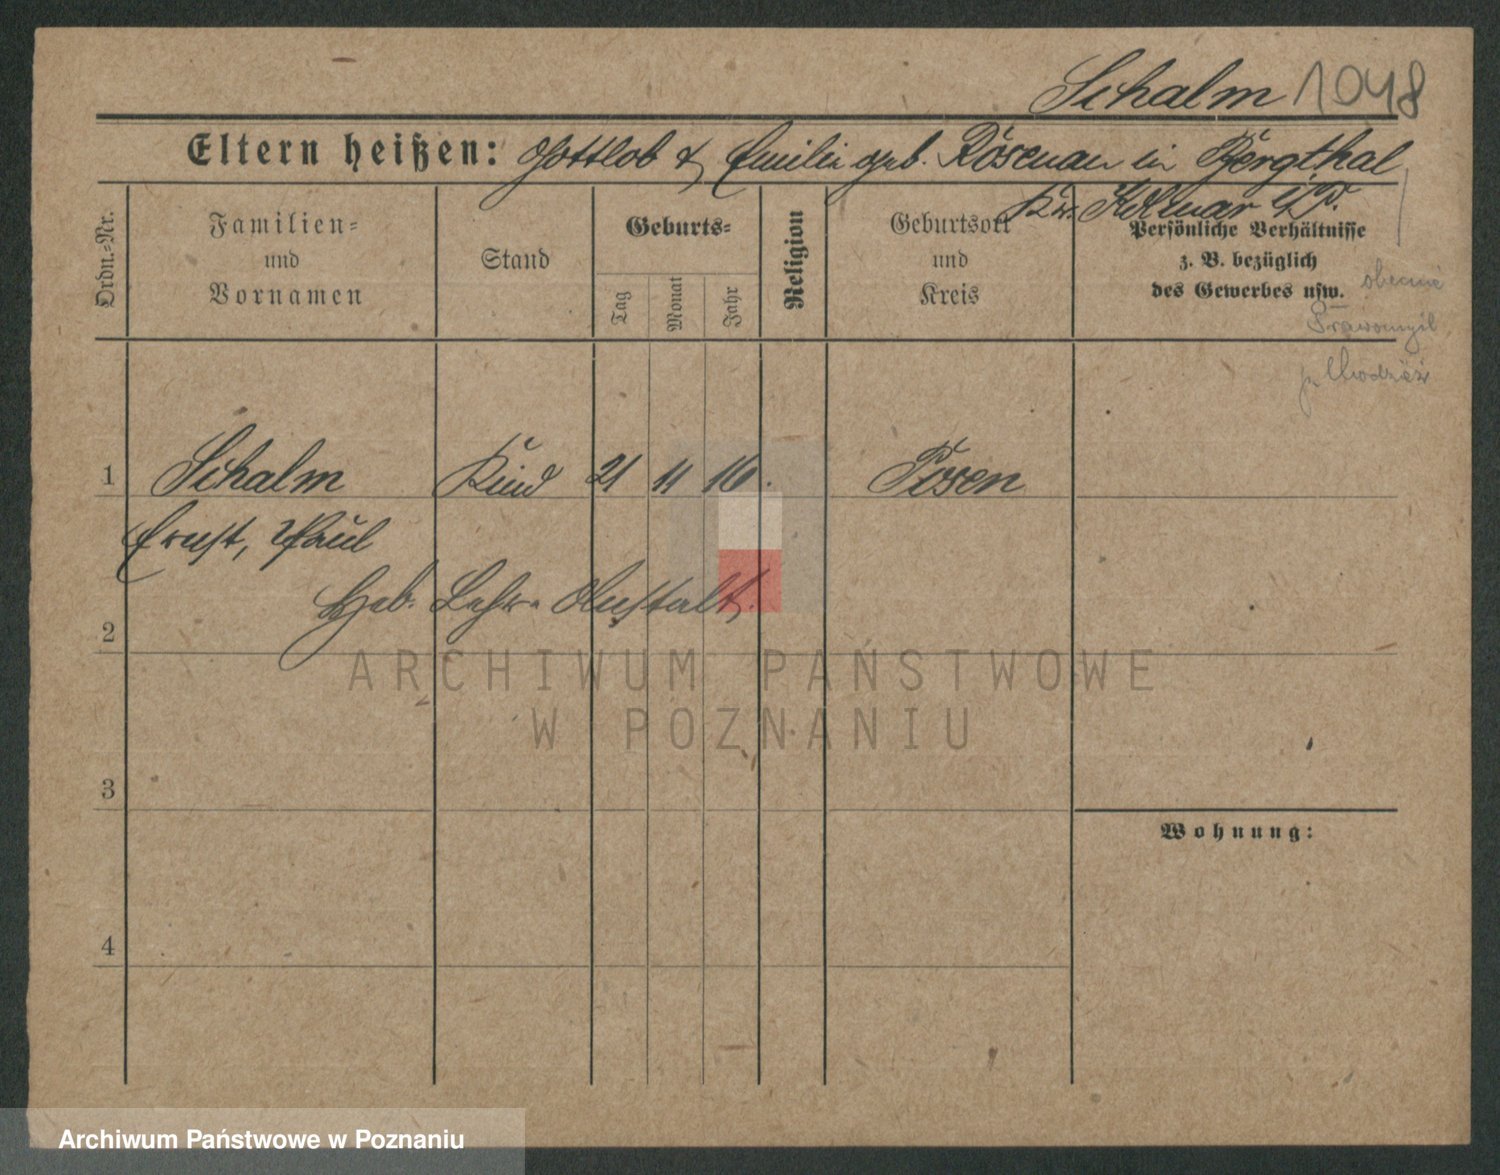 Schalm 1048
Eltern heißen: Gottlob & Emilie geb. Rosenau in Bergthal
Kr. Kolmar i/P.
Ordn.-Nr.
Familien-
und
Vornamen
Stand
Geburts-
Tag
Monat
Jahr
Religion
Geburtsort
und
Kreis
Persönliche Verhältnisse
z. B. bezüglich
des Gewerbes usw.
obecnie
Prawomyśl
p. Chodzież
1 Schalm Kind 21 11 16. Posen
Ernst, Paul
Heb. Lehr-Anstalt.
2
3
Wohnung:
4
ARCHIWUM PAŃSTWOWE
W POZNANIU
Archiwum Państwowe w Poznaniu